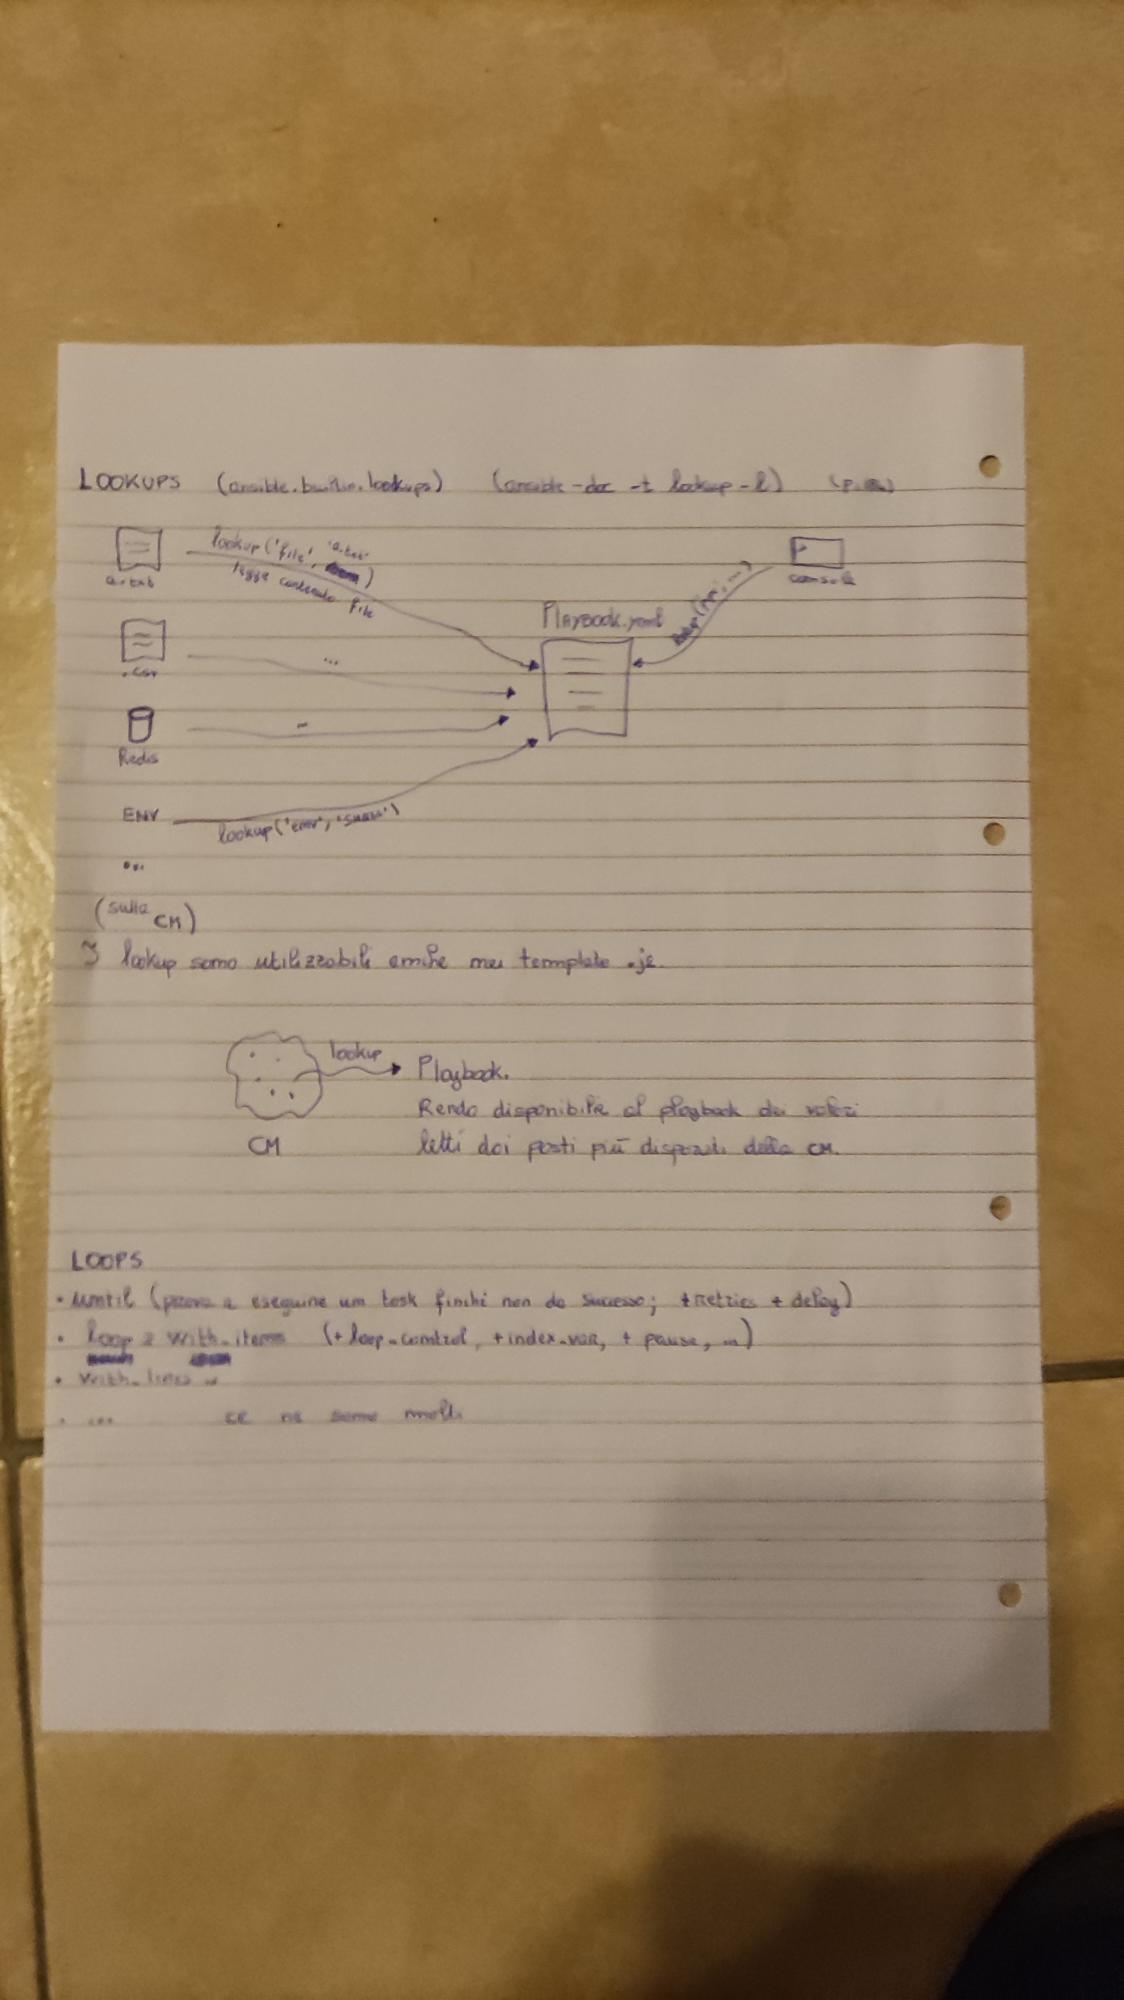 LOOKUPS (ansible.builtin.lookups) (ansible-doc -t lookup -l)
lookup('file', 'a.txt' )
legge contenuto file
a.txt
console
Playbook.yaml
...
.csv
Redis
ENV
lookup('env', )
...
(sulla CM)
I lookup sono utilizzabili anche nei template .j2
lookup
Playbook.
Rendo disponibile al playbook dei valori
CM
letti dai posti più disparati della CM.
LOOPS
• until (prova a eseguire un task finché non da successo; +retries + delay)
• loop e with_items (+ loop_control, +index_var, + pause, ...)
• with_lines
• ... ce ne sono molti